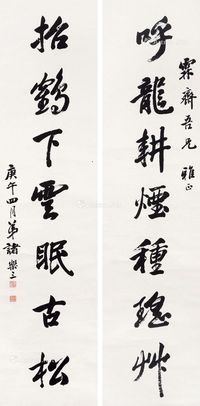 霖齋吾兄 雅正
呼龍耕煙種瑤艸
招鶴下雲眠古松
庚午四月弟諸樂三